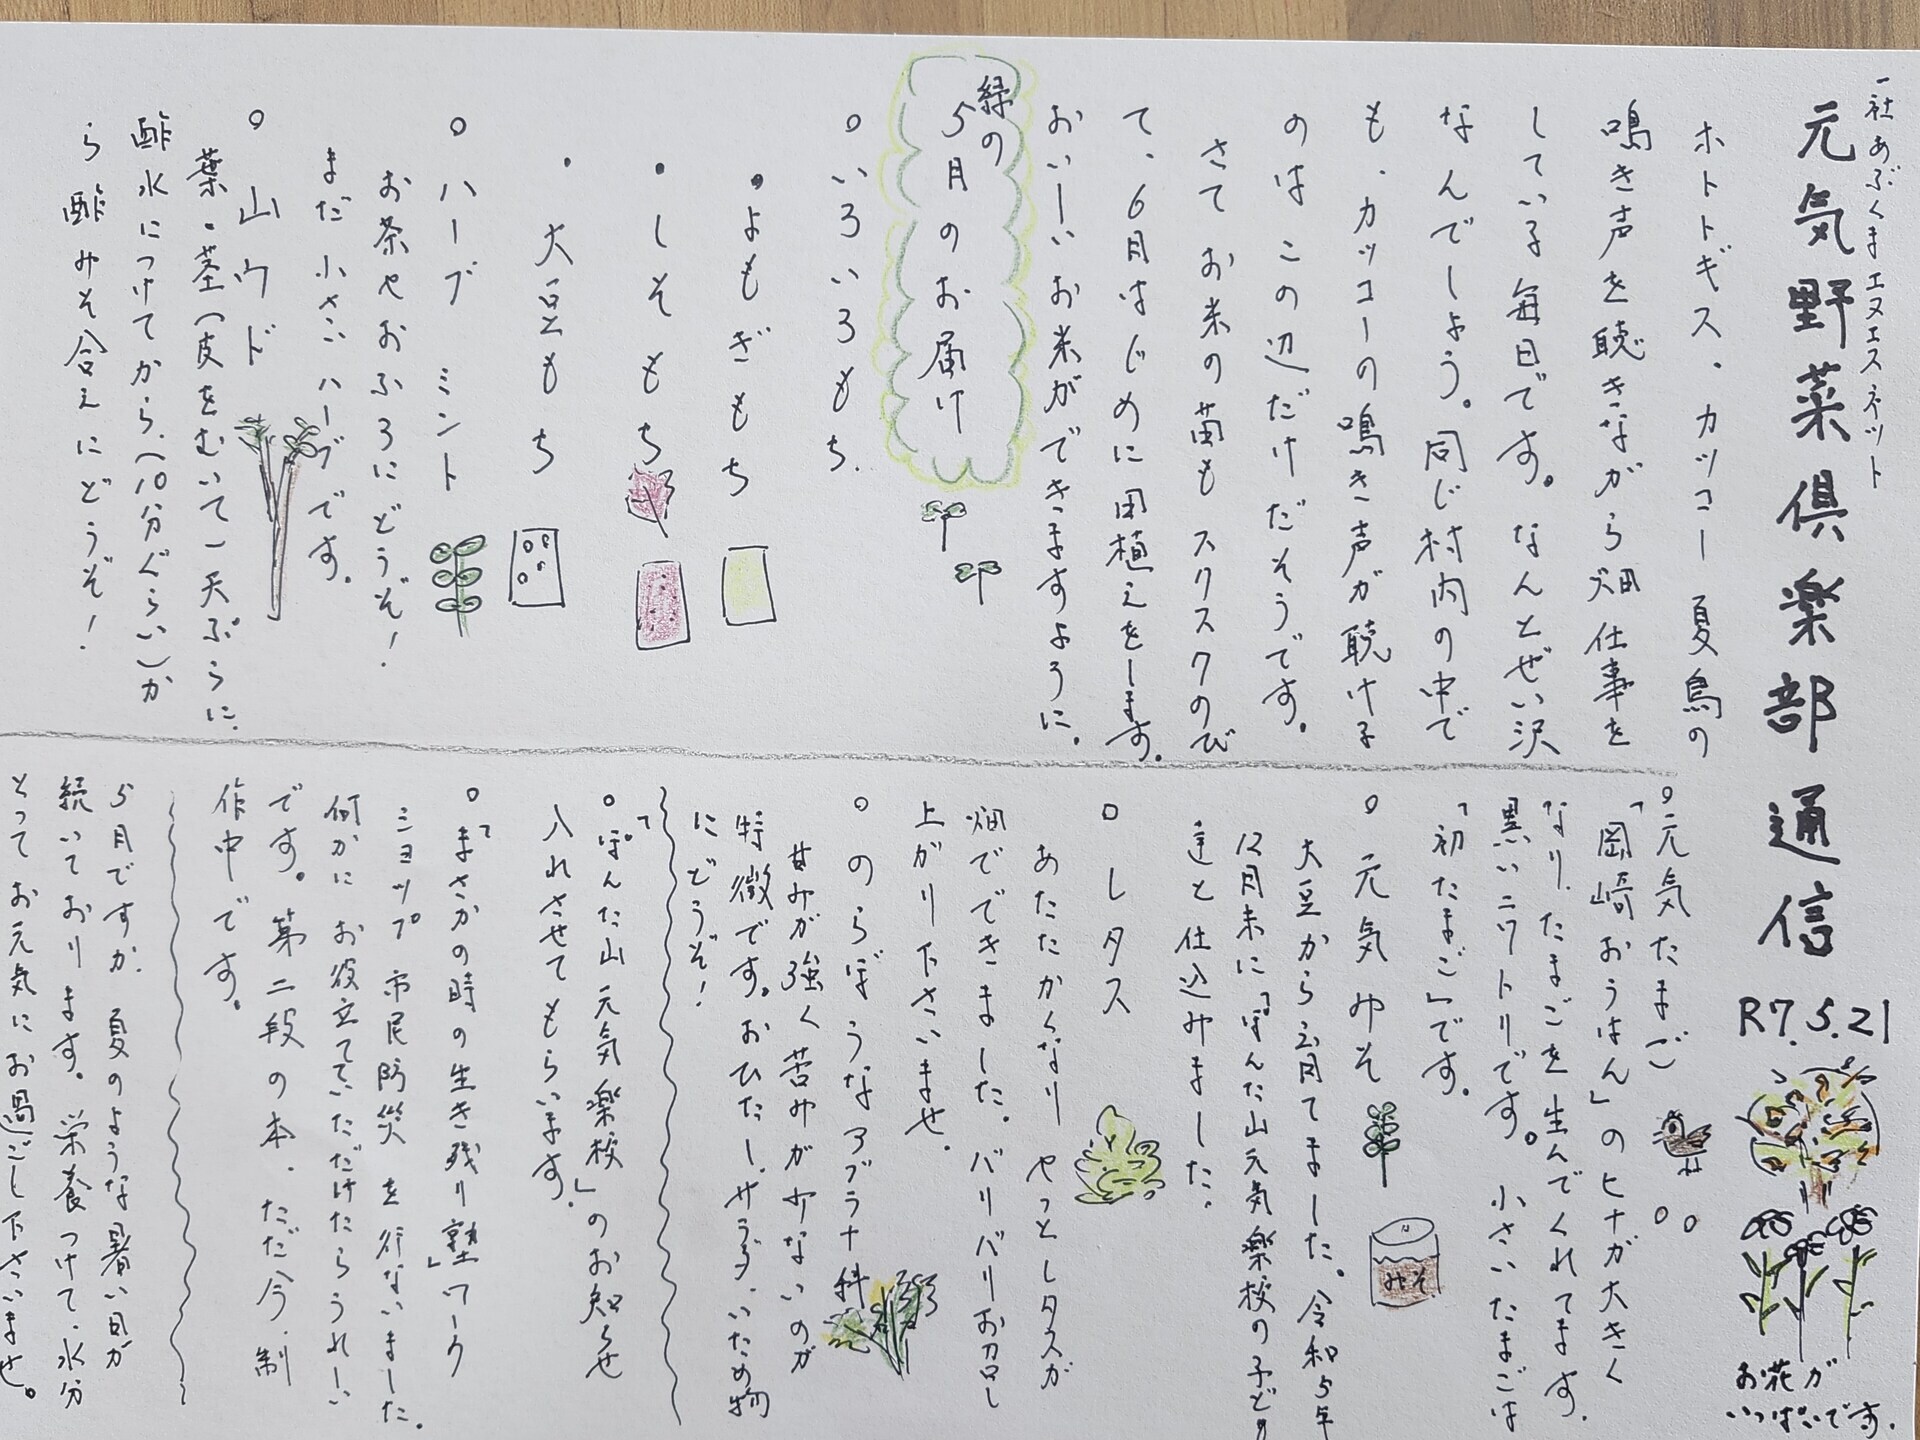 一社 あぶくまエヌエスネット
元気野菜倶楽部通信
R7.5.21
お花が
いっぱいです。
ホトトギス、カッコー 夏鳥の
鳴き声を聴きながら畑仕事を
している毎日です。なんとぜい沢
なんでしょう。同じ村内の中で
も、カッコーの鳴き声が聴ける
のは この辺だけだそうです。
さて お米の苗も スクスクのび
て、6月はじめに田植えをします。
おいしいお米ができますように。
緑の
5月のお届け
○いろいろもち、
・よもぎもち
・しそもち
・大豆もち
○ハーブ ミント
お茶やおふろにどうぞ!
まだ 小さいハーブです。
○山ウド
葉・茎(皮をむいて)天ぷらに、
酢水につけてから、(10分ぐらい)か
ら 酢みそ合えにどうぞ!
○元気たまご
「岡崎おうはん」のヒナが大きく
なり、たまごを生んでくれてます。
黒いニワトリです。小さいたまごは
「初たまご」です。
○元気みそ
みそ
大豆から育てました。令和5年
12月末に「ぽんた山元気楽校の子ども
達と仕込みました。
○レタス
あたたかくなり やっとレタスが
畑でできました。バリバリお召し
上がり下さいませ。
○のらぼうな アブラナ科
甘みが強く苦みが少ないのが
特徴です。おひたし、サラダ、いため物
にどうぞ!
○「ぽんた山元気楽校」のお知らせ
入れさせてもらいます。
○「まさかの時の生き残り塾」ワーク
ショップ 市民防災 を行ないました。
何かに お役立てていただけたらうれしい
です。第二段の本、ただ今、制
作中です。
5月ですが、夏のような暑い日が
続いております。栄養つけて、水分
とって お元気にお過ごし下さいませ。